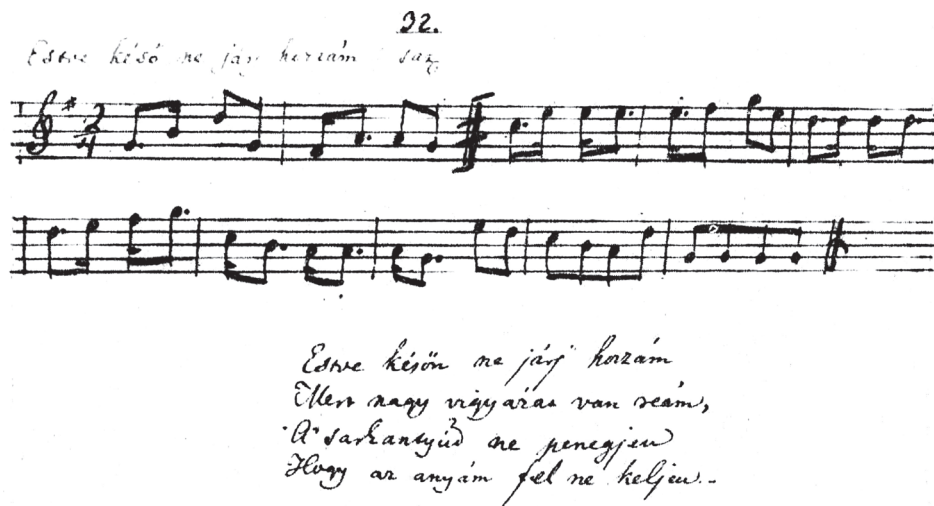 32.
Estve késő ne járj hozzám
2/4
Estve késön ne járj hozzám
Mert nagy vigyázat van reám,
A sarkantyúd ne penegjen
Hogy az anyám fel ne keljen.